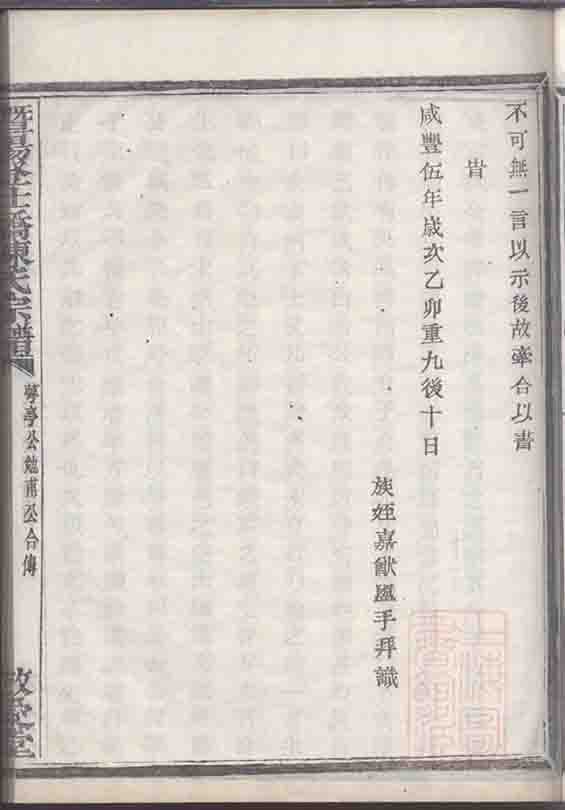 不可無一言以示後故牽合以書
旹
咸豐伍年歲次乙卯重九後十日
族姪嘉猷盥手拜識
陳氏宗譜
萼亭公勉甫公合傳